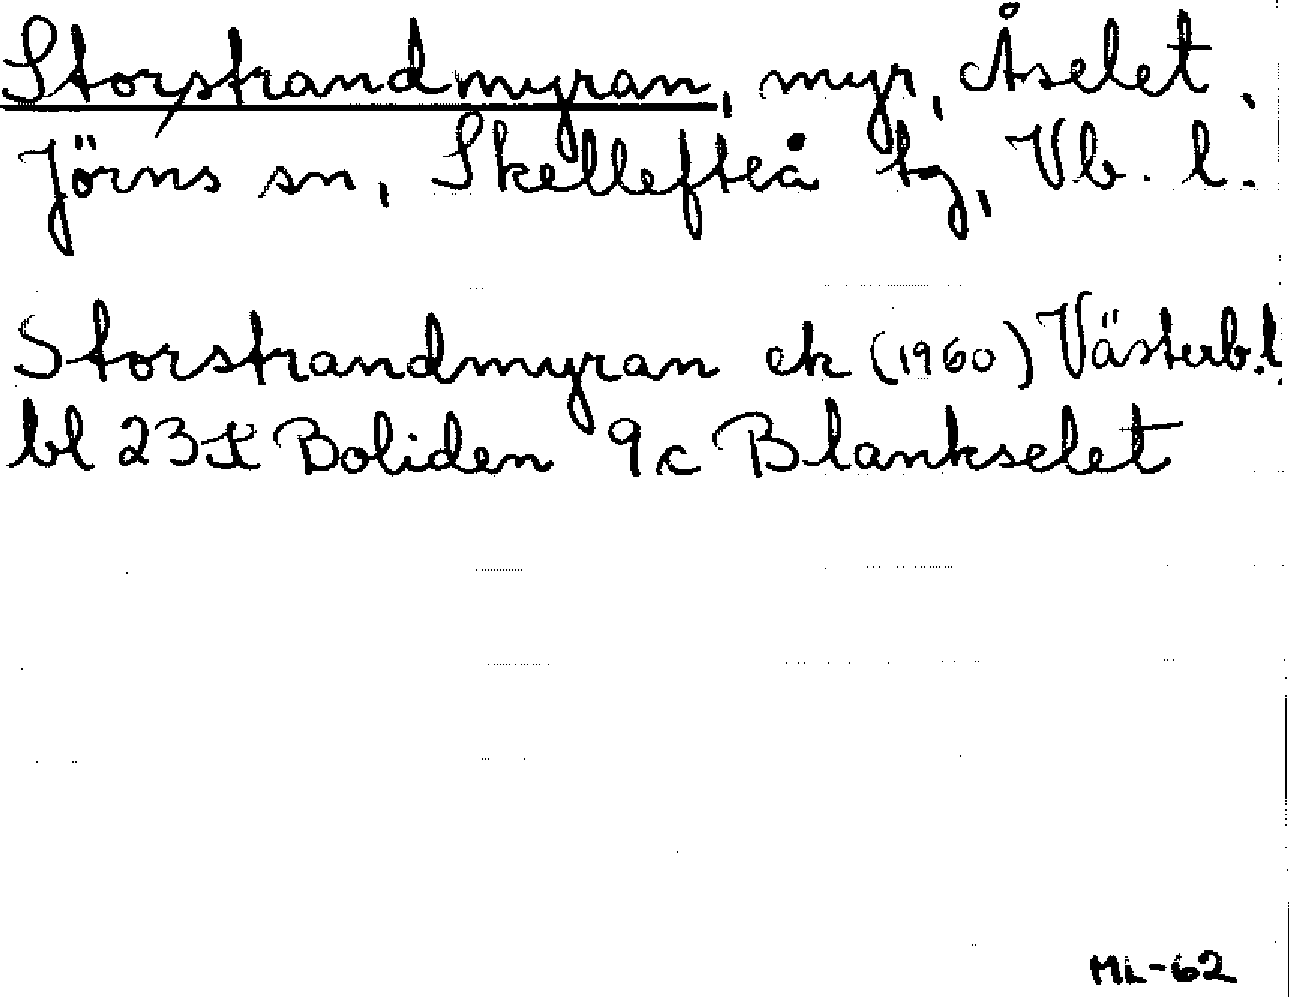 Storstrandmyran, myr, Åselet,
Jörns sn, Skellefteå tg, Vb. l.
Storstrandmyran ek (1960) Västerb.l
bl 23J Boliden 9c Blankselet
ML-62